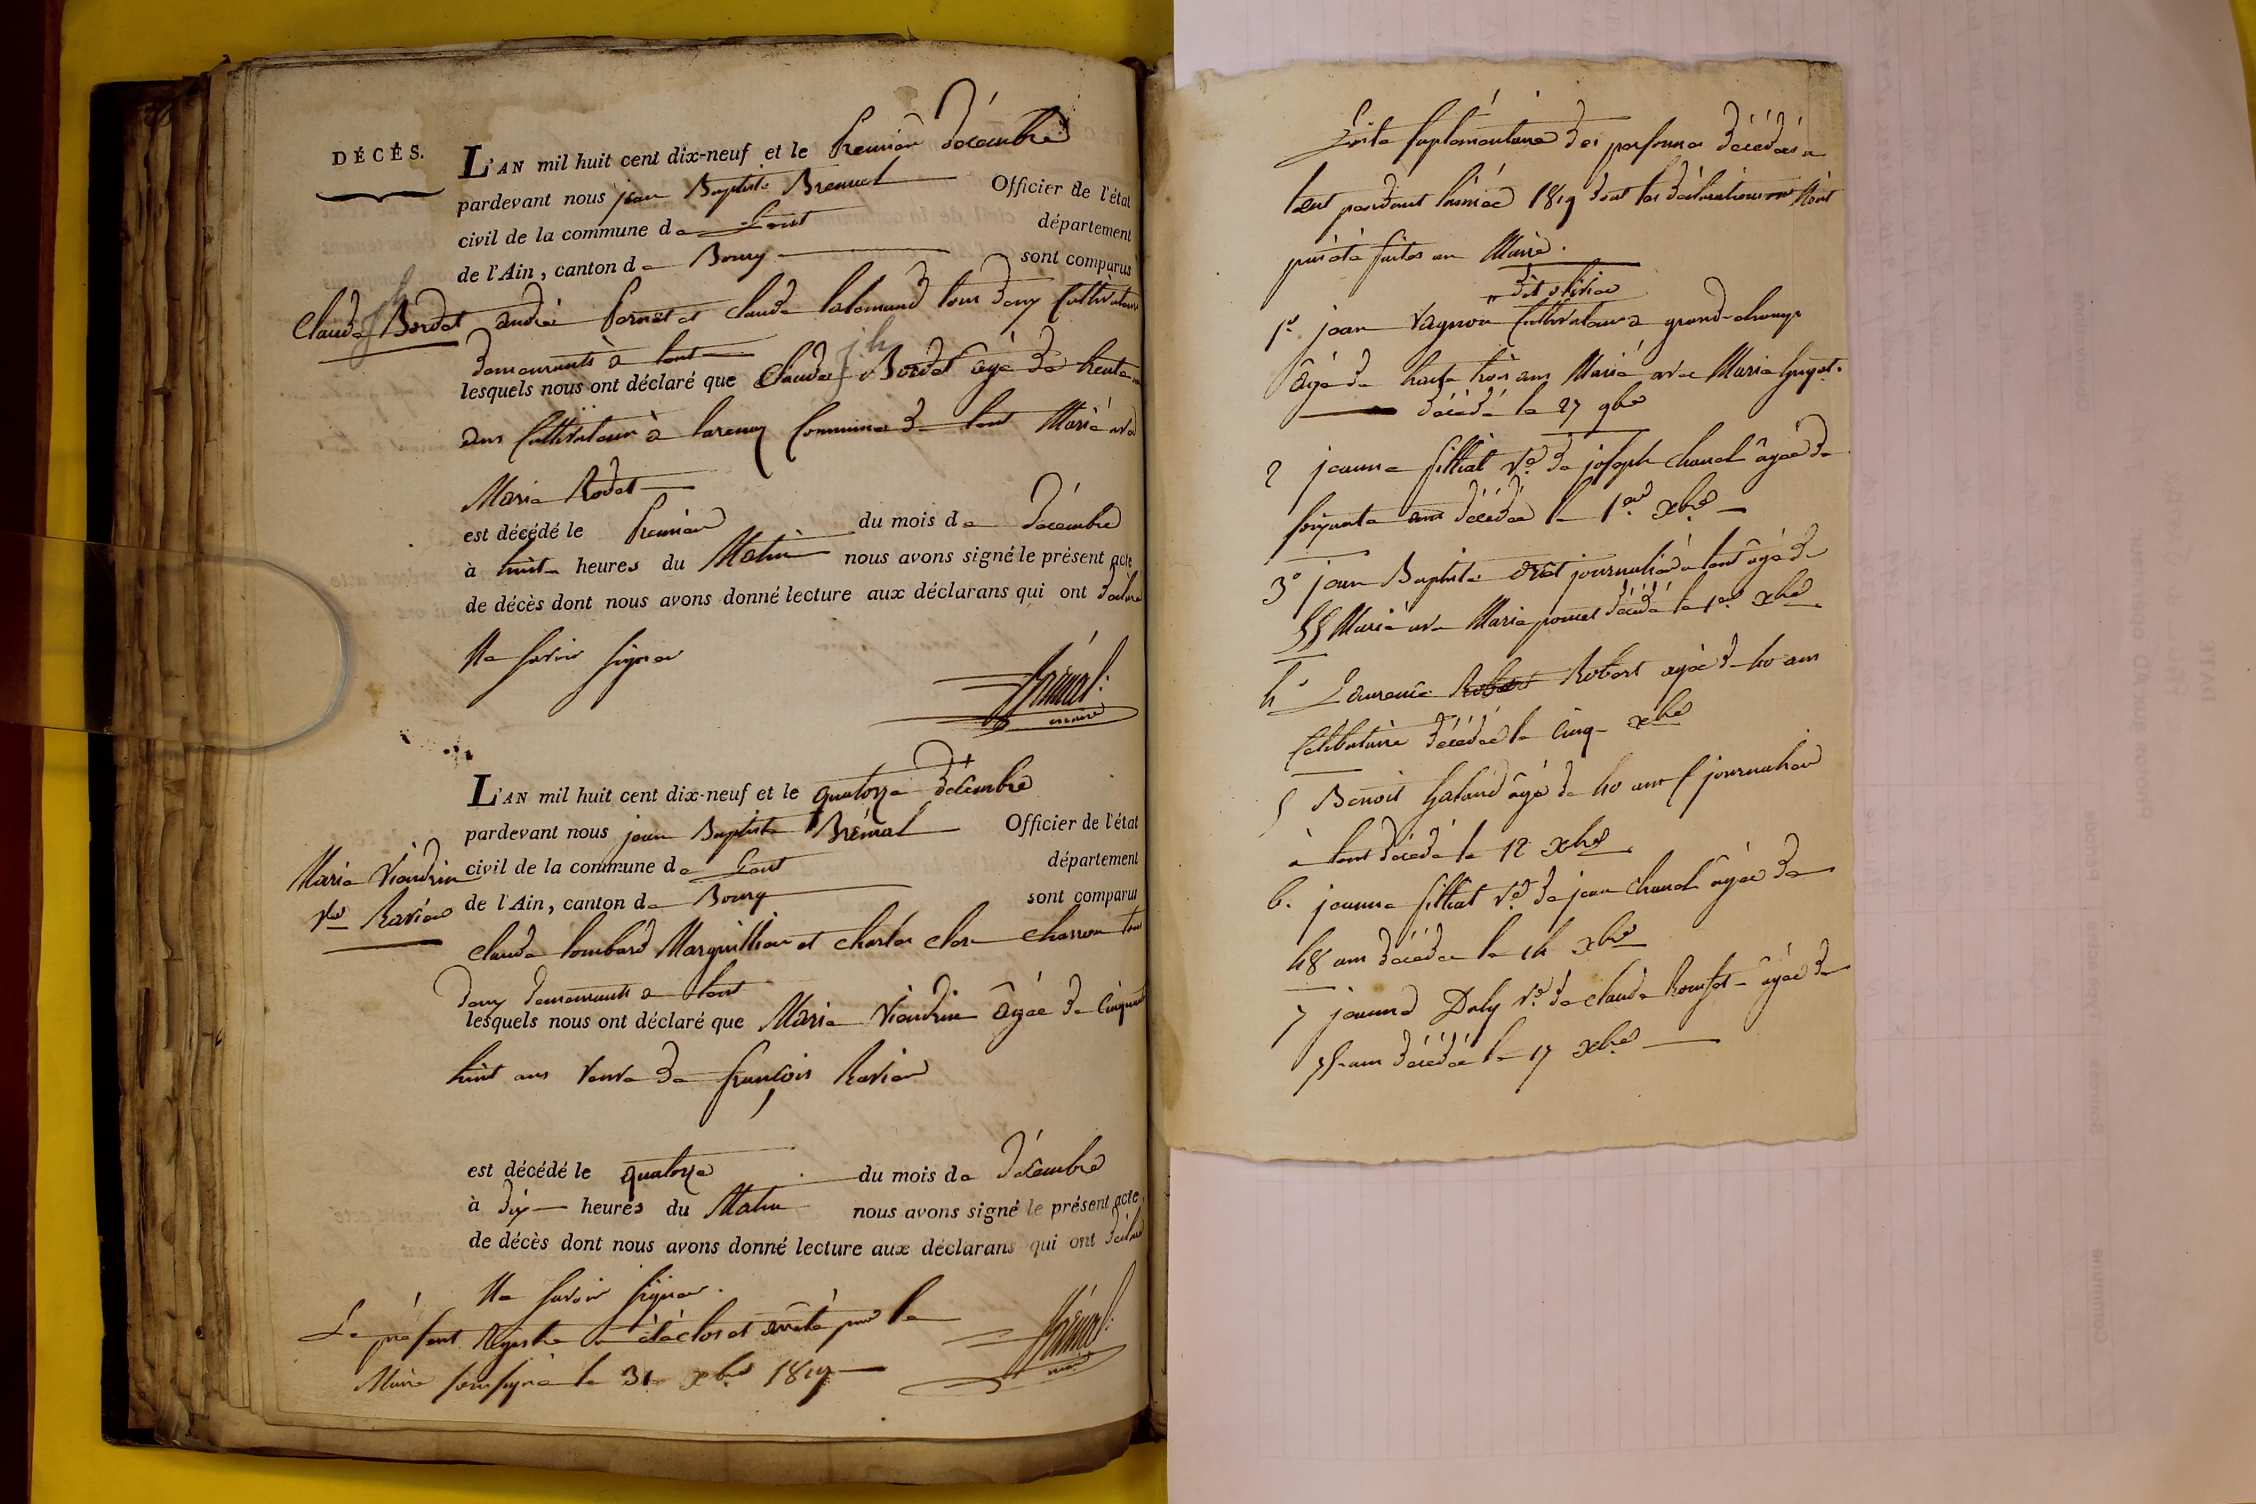 DÉCÉS.
L'AN mil huit cent dix-neuf et le Premier décembre
pardevant nous jean Baptiste Brenal Officier de l'état
civil de la commune de Lent département
de l'Ain, canton de Bourg sont comparus
Claude Bordet
andré et claude tous deux Cultivateurs
demeurants à Lent
lesquels nous ont déclaré que Claude jh Bordet âgé de trente
ans Cultivateur à Commune de Lent Marié avec
Maria Rodet
est décédé le Premier du mois de décembre
à huit heures du Matin nous avons signé le présent acte
de décès dont nous avons donné lecture aux déclarans qui ont déclaré
Ne savoir signer
Brénal
maire
L'AN mil huit cent dix-neuf et le quatorze décembre
pardevant nous jean Baptiste Brénal Officier de l'état
civil de la commune de Lent département
de l'Ain, canton de Bourg sont comparus
Maria Viendrin
Ve Ravier
Claude Lombard Marguillier et charles clere charron tous
deux demeurants à Lent
lesquels nous ont déclaré que Maria Viendrin âgée de Cinquante
huit ans Veuve de françois Ravier
est décédé le quatorze du mois de décembre
à dix heures du Matin nous avons signé le présent acte
de décès dont nous avons donné lecture aux déclarans qui ont déclaré
Ne savoir signer.
Le présent Registre a été clos et arrêté par le
Maire soussigné le 31 xbre 1819
Brénal
maire
Liste suplémentaire des personnes décédées a
Lent pendant l'année 1819 dont les déclarations n'ont
pas été faites au Maire.
dit olivier
1er jean Vagnon Cultivateur a grand-champ
âgé de trente trois ans Marié avec Maria guyot.
décédé le 27 9bre
2 jeanne filliat Ve de joseph chanel âgée de
soixante ans décédée le 1er xbre
3° jean Baptiste journalier a Lent âgé de
55 Marié avec Maria décédé le 1er xbre
4° Laurence Robert Robert agée de 40 ans
Célibataire décédée le Cinq xbre
5 Benoit galand âgé de 40 ans journalier
à Lent décédé le 12 xbre
6. jeanne filliat Ve de jean chanel âgée de
48 ans décédée le 14 xbre
7 jeanne Daly Ve de claude âgée de
ans décédée le 17 xbre